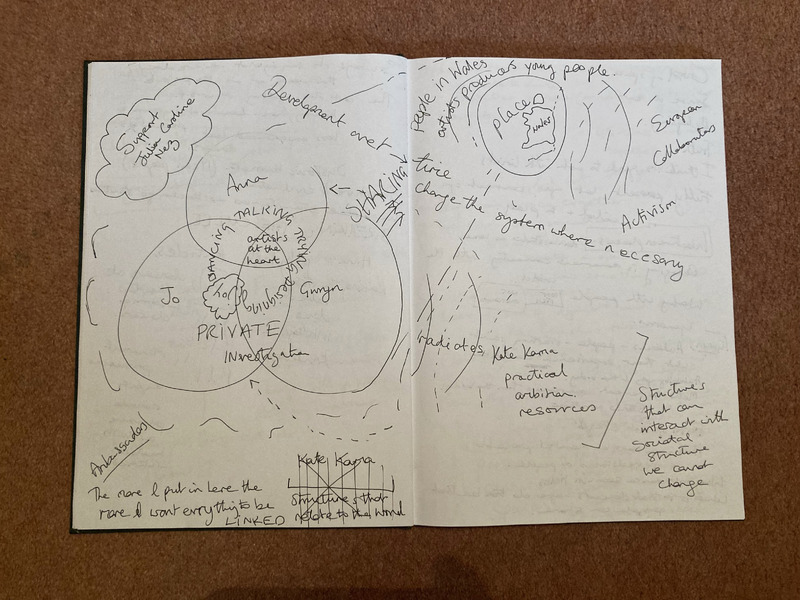 Support
Julia Caroline
Nez
Development over
time
Anna
TALKING
DANCING
artists
at the
heart
TRYING
Designing
Joy
Jo
Gwyn
PRIVATE
INvestigation
SHARING
Ambassadors
The more I put in here the
more I want everything to be
LINKED
Kate Kama
Structures that
relate to the World
People in Wales
artists producers young people.
place
water
European
Collaborators
Activism
change the system where necesary
radiates
Kate Kama
practical
ambition.
resources
Structures
that can
interact with
societal
structure
we cannot
change